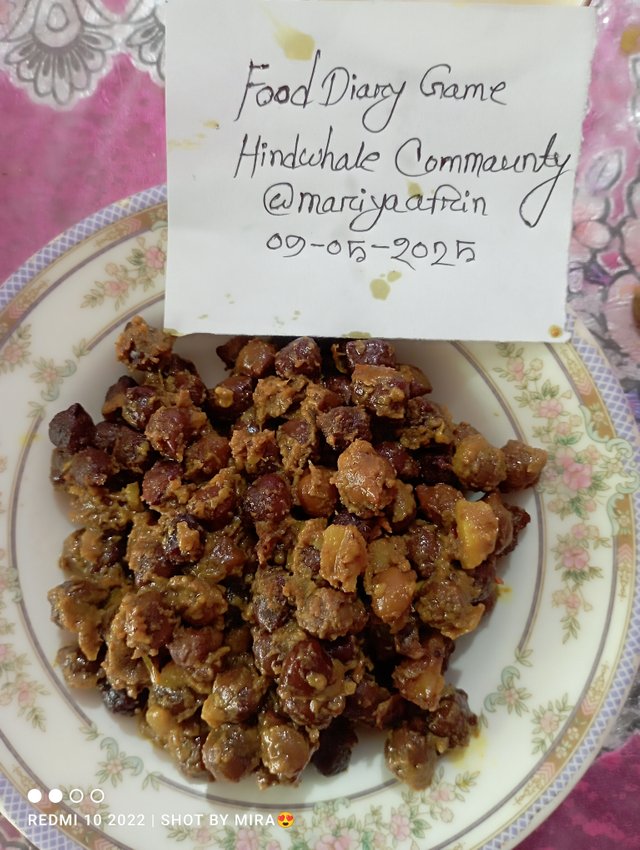 Food Diary Game
Hindwhale Commaunty
@mariyaafrin
09-05-2025
REDMI 10 2022 | SHOT BY MIRA😍